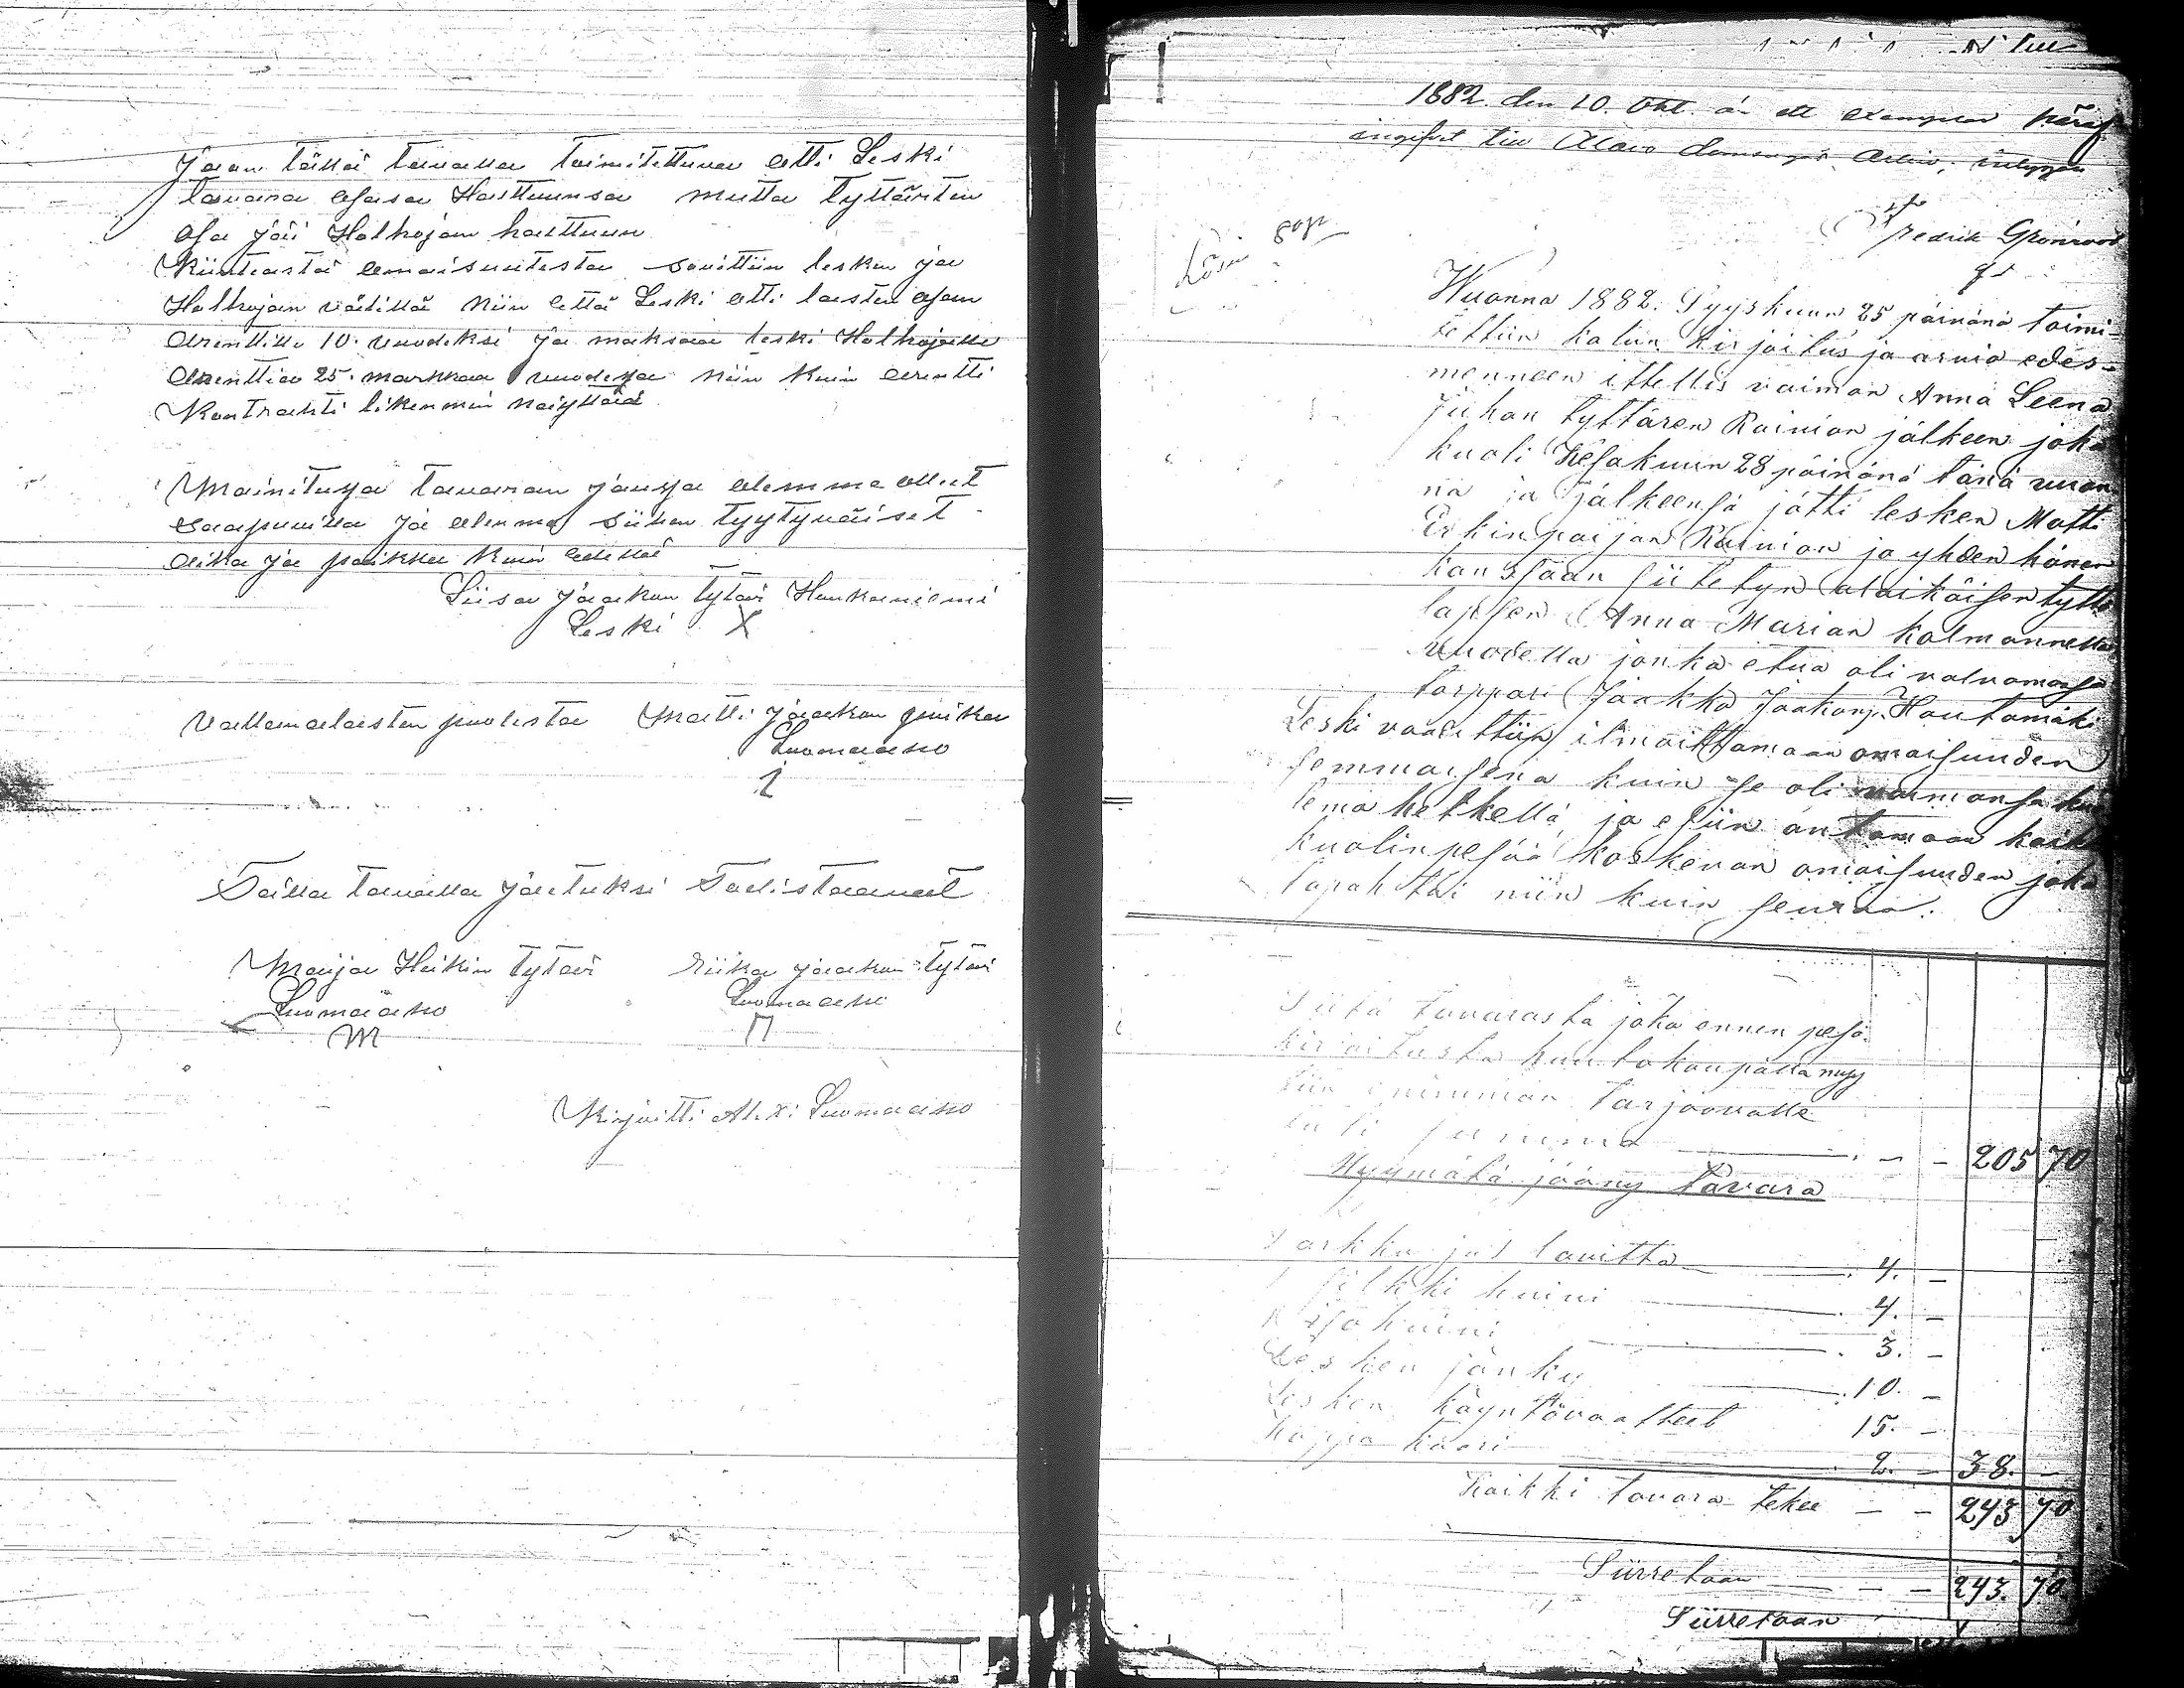 Jaon tällä tavalla toimitettuna otti Leski
tavara osasa Haltuunsa mutta tyttärten
osa jäi Holhojan halttuun
Kiinteästä omaisuutesta sovittiin lesken ja
Holhojan välillä niin että Leski otti lasten osan
Arenttille 10. vuodeksi ja maksaa leski Holhojalle
Arenttia 25. markkaa vuodessa niin kuin arentti
Kontrahti likemmin näyttää
Mainitussa tavaran jaossa olemme ollut
saapuvilla ja olemma siihen tyytyväiset
aika ja paikka kuin edellä
Liisa Jaakon tytär Haukaniemi
Leski X
Vallanalaisten puolesta Matti Jaakon poika
Luomaaho
Tällä tavalla jaetuksi Todistaavat
Maija Heikin tytär Riika Jaakon tytär
Luomaaho Luomaaho
M
Kirjoitti Luomaaho
1882. den 10. Okt. är ett exemplar
ingifvet till Alavo Arkiv,
Fredrik Grönroos
Wuonna 1882. Syyskuun 25 päinänä toimi-
tettiin kalun kirjoitus ja arvio edes-
menneen ittellis vaimon Anna Leena
Juhan tyttären Rainion jälkeen joka
kuoli Kesäkuun 28 päinänä tänä vuon-
na ja jälkeensä jätti lesken Matti
Erkinpoijan Rainion ja yhden hänen
kanssaan siitetyn alaikäisen tyttö
lapsen Anna Marian kolmannella
vuodella jonka etua oli valvomassa
torppari Jaakko Jaakonp. Hautamäki
Leski vaadittiin ilmoittamaan omaisuuden
semmaisena kuin se oli vaimonsa kuo
lema hetkellä ja esiin antamaan kaik
kuolinpesää koskevan omaisuuden joka
tapahttui niin kuin seuraa.
Siitä tavarasta joka ennen pesä
kirjoitusta huutokaupalla myy
tiin enimmän tarjoovalle
tuli summa - - 205 70
Myymätä jääny tavara
4. -
huivi 4. -
huivi 3. -
Lesken sänky 10. -
Lesken käyntövaatteet 15. -
Kappa kaari 2. - 38. -
Kaikki tavara tekee - - 243 70
Siirretään - - 243. 70
Siirretään